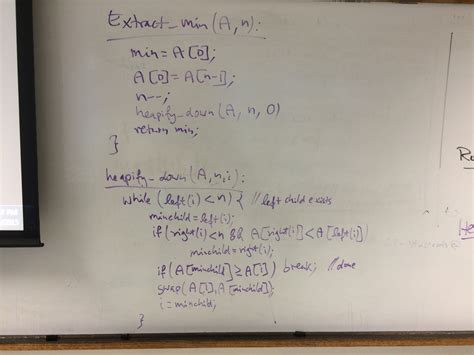 Extract_min(A, n):
min = A[0];
A[0] = A[n-1];
n--;
heapify_down(A, n, 0)
return min;
}
heapify_down(A, n, i):
while (left(i) < n) { // left child exists
minchild = left(i);
if (right(i) < n && A[right(i)] < A[left(i)])
minchild = right(i);
if (A[minchild] ≥ A[i]) break; // done
swap(A[i], A[minchild]);
i = minchild;
}